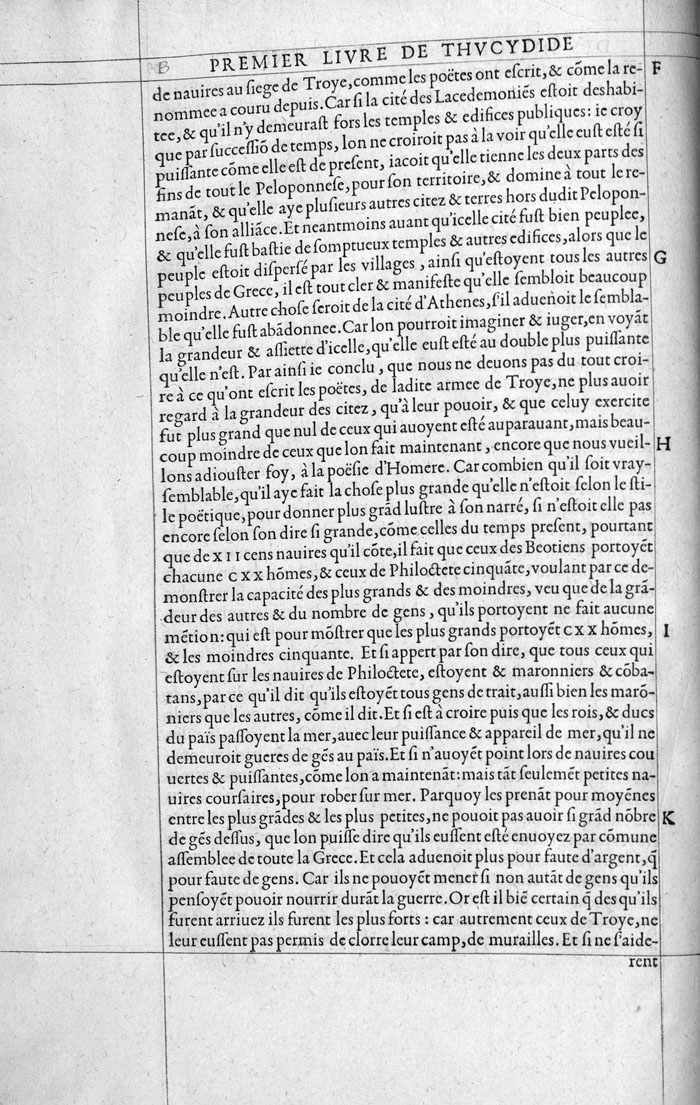 B PREMIER LIVRE DE THVCYDIDE
de nauires au ſiege de Troye, comme les poëtes ont eſcrit, & cõme la re- F
nommee a couru depuis. Car ſi la cité des Lacedemoniẽs eſtoit deshabi-
tee, & qu'il n'y demeuraſt fors les temples & edifices publiques: ie croy
que par ſucceſſiõ de temps, lon ne croiroit pas à la voir qu'elle euſt eſté ſi
puiſſante cõme elle eſt de preſent, iacoit qu'elle tienne les deux parts des
fins de tout le Peloponneſe, pour ſon territoire, & domine à tout le re-
manãt, & qu'elle aye pluſieurs autres citez & terres hors dudit Pelopon-
neſe, à ſon alliãce. Et neantmoins auant qu'icelle cité fuſt bien peuplee,
& qu'elle fuſt baſtie de ſomptueux temples & autres edifices, alors que le
peuple eſtoit diſperſé par les villages, ainſi qu'eſtoyent tous les autres G
peuples de Grece, il eſt tout cler & manifeſte qu'elle ſembloit beaucoup
moindre. Autre choſe ſeroit de la cité d'Athenes, ſ'il aduenoit le ſembla-
ble qu'elle fuſt abãdonnee. Car lon pourroit imaginer & iuger, en voyãt
la grandeur & aſſiette d'icelle, qu'elle euſt eſté au double plus puiſſante
qu'elle n'eſt. Par ainſi ie conclu, que nous ne deuons pas du tout croi-
re à ce qu'ont eſcrit les poëtes, de ladite armee de Troye, ne plus auoir
regard à la grandeur des citez, qu'à leur pouoir, & que celuy exercite
fut plus grand que nul de ceux qui auoyent eſté auparauant, mais beau-
coup moindre de ceux que lon fait maintenant, encore que nous vueil- H
lons adiouſter foy, à la poëſie d'Homere. Car combien qu'il ſoit vray-
ſemblable, qu'il aye fait la choſe plus grande qu'elle n'eſtoit ſelon le ſti-
le poëtique, pour donner plus grãd luſtre à ſon narré, ſi n'eſtoit elle pas
encore ſelon ſon dire ſi grande, cõme celles du temps preſent, pourtant
que de XII cens nauires qu'il cõte, il fait que ceux des Beotiens portoyẽt
chacune CXX hõmes, & ceux de Philoctete cinquãte, voulant par ce de-
monſtrer la capacité des plus grands & des moindres, veu que de la grã-
deur des autres & du nombre de gens, qu'ils portoyent ne fait aucune
mẽtion: qui eſt pour mõſtrer que les plus grands portoyẽt CXX hõmes, I
& les moindres cinquante. Et ſi appert par ſon dire, que tous ceux qui
eſtoyent ſur les nauires de Philoctete, eſtoyent & maronniers & cõba-
tans, par ce qu'il dit qu'ils eſtoyẽt tous gens de trait, auſſi bien les marõ-
niers que les autres, cõme il dit. Et ſi eſt à croire puis que les rois, & ducs
du païs paſſoyent la mer, auec leur puiſſance & appareil de mer, qu'il ne
demeuroit gueres de gẽs au païs. Et ſi n'auoyẽt point lors de nauires cou
uertes & puiſſantes, cõme lon a maintenãt: mais tãt ſeulemẽt petites na-
uires courſaires, pour rober ſur mer. Parquoy les prenãt pour moyẽnes
entre les plus grãdes & les plus petites, ne pouoit pas auoir ſi grãd nõbre K
de gẽs deſſus, que lon puiſſe dire qu'ils euſſent eſté enuoyez par cõmune
aſſemblee de toute la Grece. Et cela aduenoit plus pour faute d'argent, q̃
pour faute de gens. Car ils ne pouoyẽt mener ſi non autãt de gens qu'ils
penſoyẽt pouoir nourrir durãt la guerre. Or eſt il biẽ certain q̃ des qu'ils
furent arriuez ils furent les plus forts: car autrement ceux de Troye, ne
leur euſſent pas permis de clorre leur camp, de murailles. Et ſi ne ſ'aide-
rent